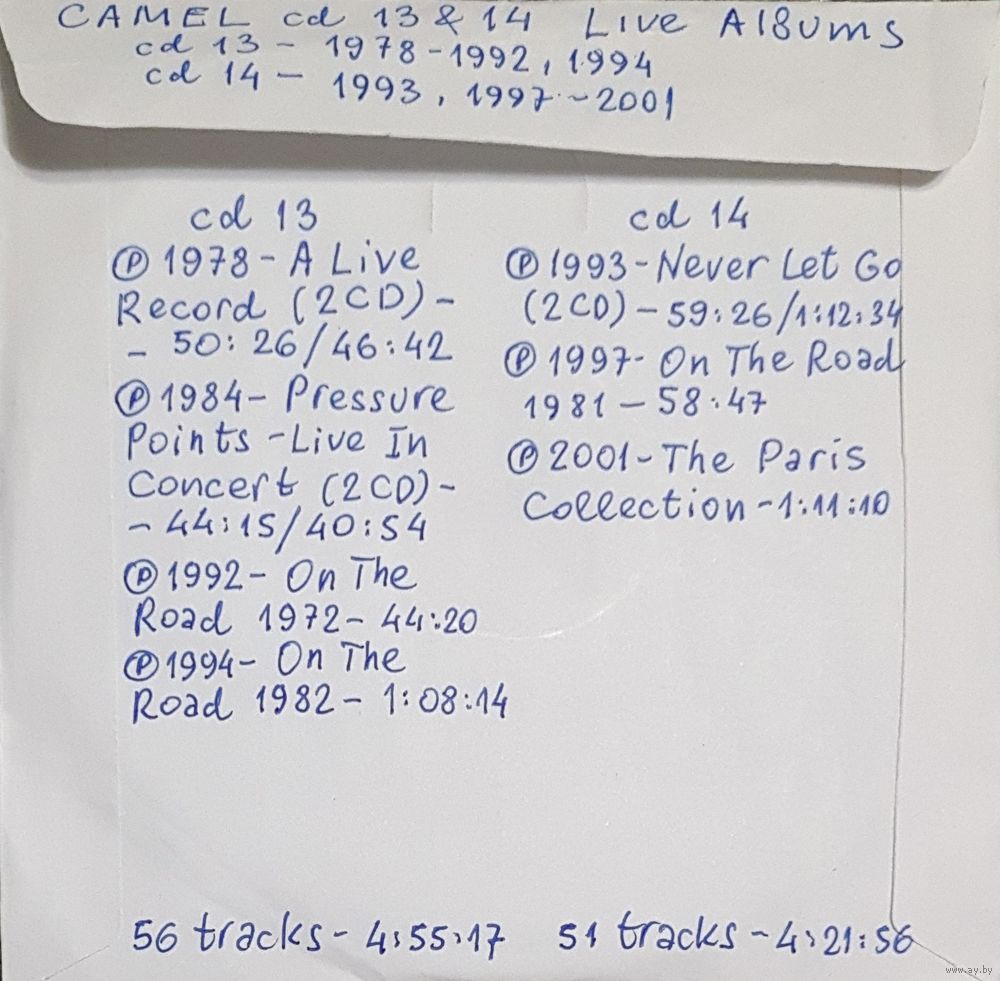 CAMEL cd 13 & 14 Live Albums
cd 13 - 1978-1992, 1994
cd 14 - 1993, 1997-2001
cd 13
Ⓟ 1978 - A Live
Record (2CD) -
- 50:26/46:42
Ⓟ 1984 - Pressure
Points - Live In
Concert (2CD) -
- 44:15/40:54
Ⓟ 1992 - On The
Road 1972 - 44:20
Ⓟ 1994 - On The
Road 1982 - 1:08:14
56 tracks - 4:55:17
cd 14
Ⓟ 1993 - Never Let Go
(2CD) - 59:26/1:12:34
Ⓟ 1997 - On The Road
1981 - 58:47
Ⓟ 2001 - The Paris
Collection - 1:11:10
51 tracks - 4:21:56
www.ay.by